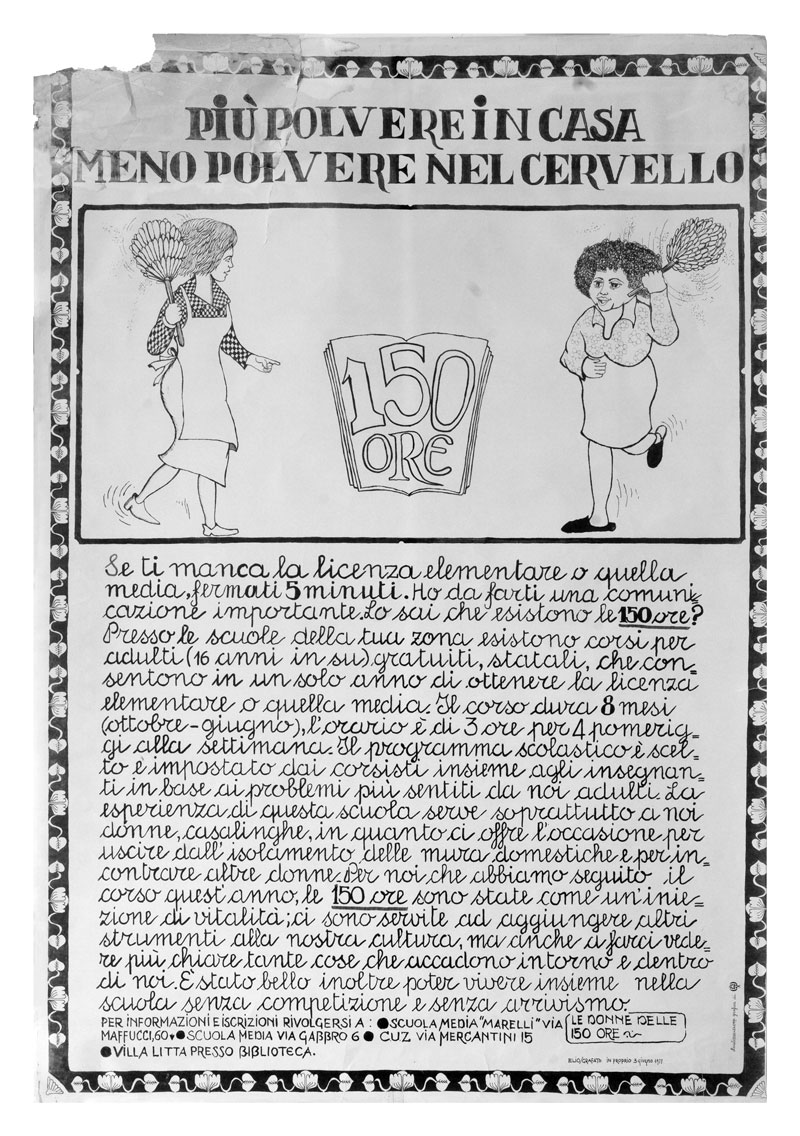 PIÙ POLVERE IN CASA
MENO POLVERE NEL CERVELLO
150
ORE
Se ti manca la licenza elementare o quella
media, fermati 5 minuti. Ho da farti una comuni=
cazione importante. Lo sai che esistono le 150 ore?
Presso le scuole della tua zona esistono corsi per
adulti (16 anni in su) gratuiti, statali, che con=
sentono in un solo anno di ottenere la licenza
elementare o quella media. Il corso dura 8 mesi
(ottobre-giugno), l'orario è di 3 ore per 4 pomerig=
gi alla settimana. Il programma scolastico è scel=
to e impostato dai corsisti insieme agli insegnan=
ti in base ai problemi più sentiti da noi adulti. La
esperienza di questa scuola serve soprattutto a noi
donne, casalinghe, in quanto ci offre l'occasione per
uscire dall'isolamento delle mura domestiche e per in=
contrare altre donne. Per noi che abbiamo seguito il
corso quest'anno, le 150 ore sono state come un'inie=
zione di vitalità; ci sono servite ad aggiungere altri
strumenti alla nostra cultura, ma anche a farci vede=
re più chiare tante cose che accadono intorno e dentro
di noi. È stato bello inoltre poter vivere insieme nella
scuola senza competizione e senza arrivismo.
PER INFORMAZIONI E ISCRIZIONI RIVOLGERSI A: ●SCUOLA MEDIA "MARELLI" VIA
MAFFUCCI, 60 ● SCUOLA MEDIA VIA GABBRO 6 ● CUZ VIA MERCANTINI 15
●VILLA LITTA PRESSO BIBLIOTECA.
LE DONNE DELLE
150 ORE
IN PROPRIO 3 GIUGNO 1977